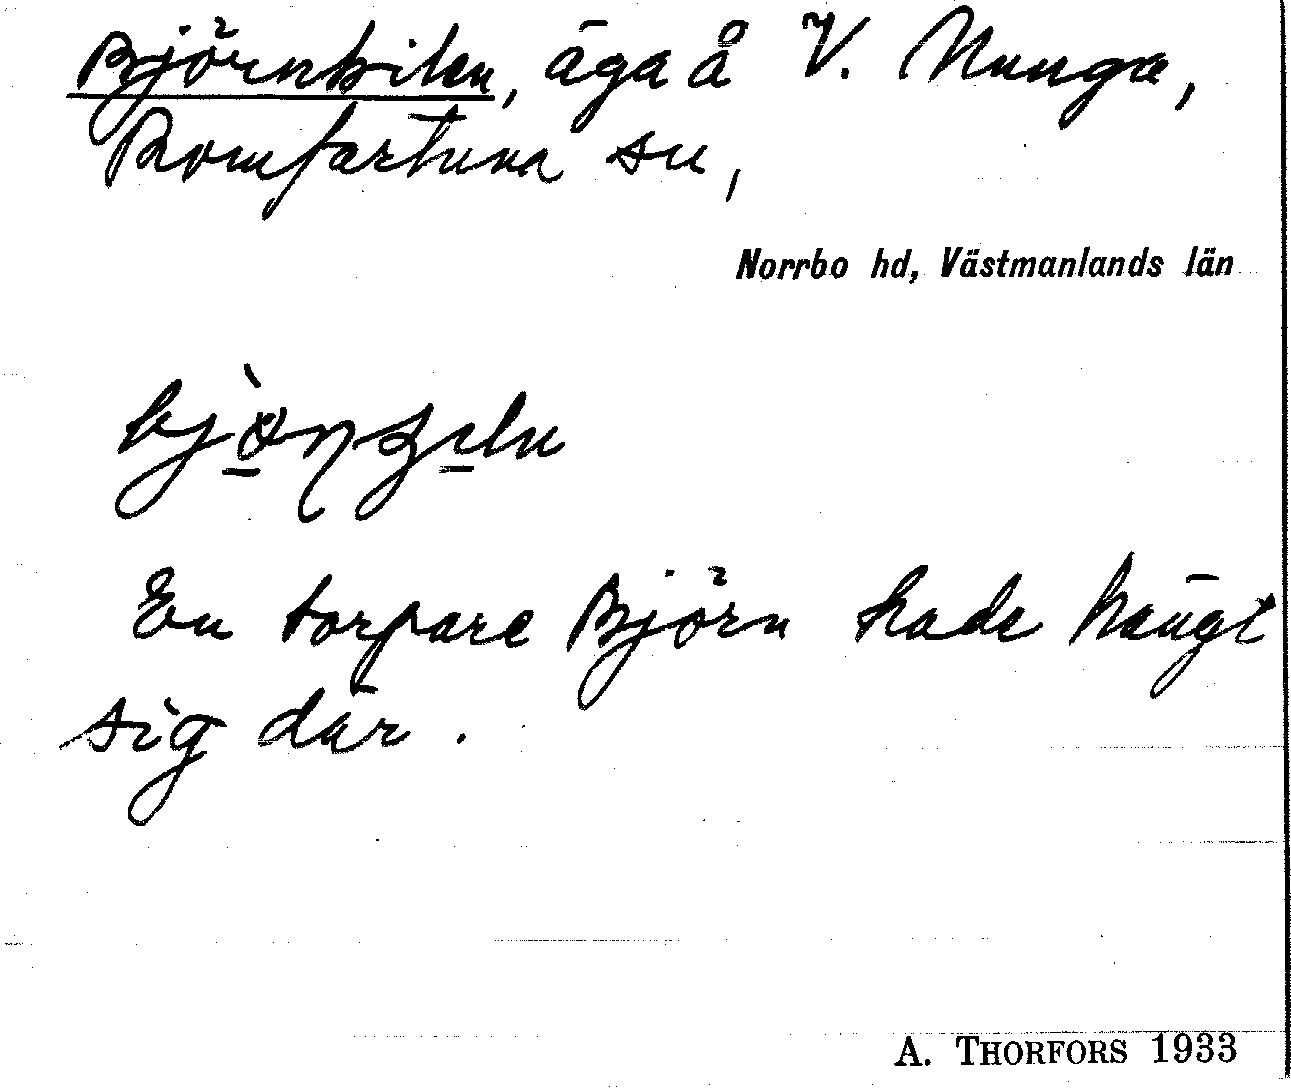 Björnkilen, äga å V. Nunga,
Romfartuna sn,
Norrbo hd, Västmanlands län
En torpare Björn hade hängt
sig där.
A. THORFORS 1933